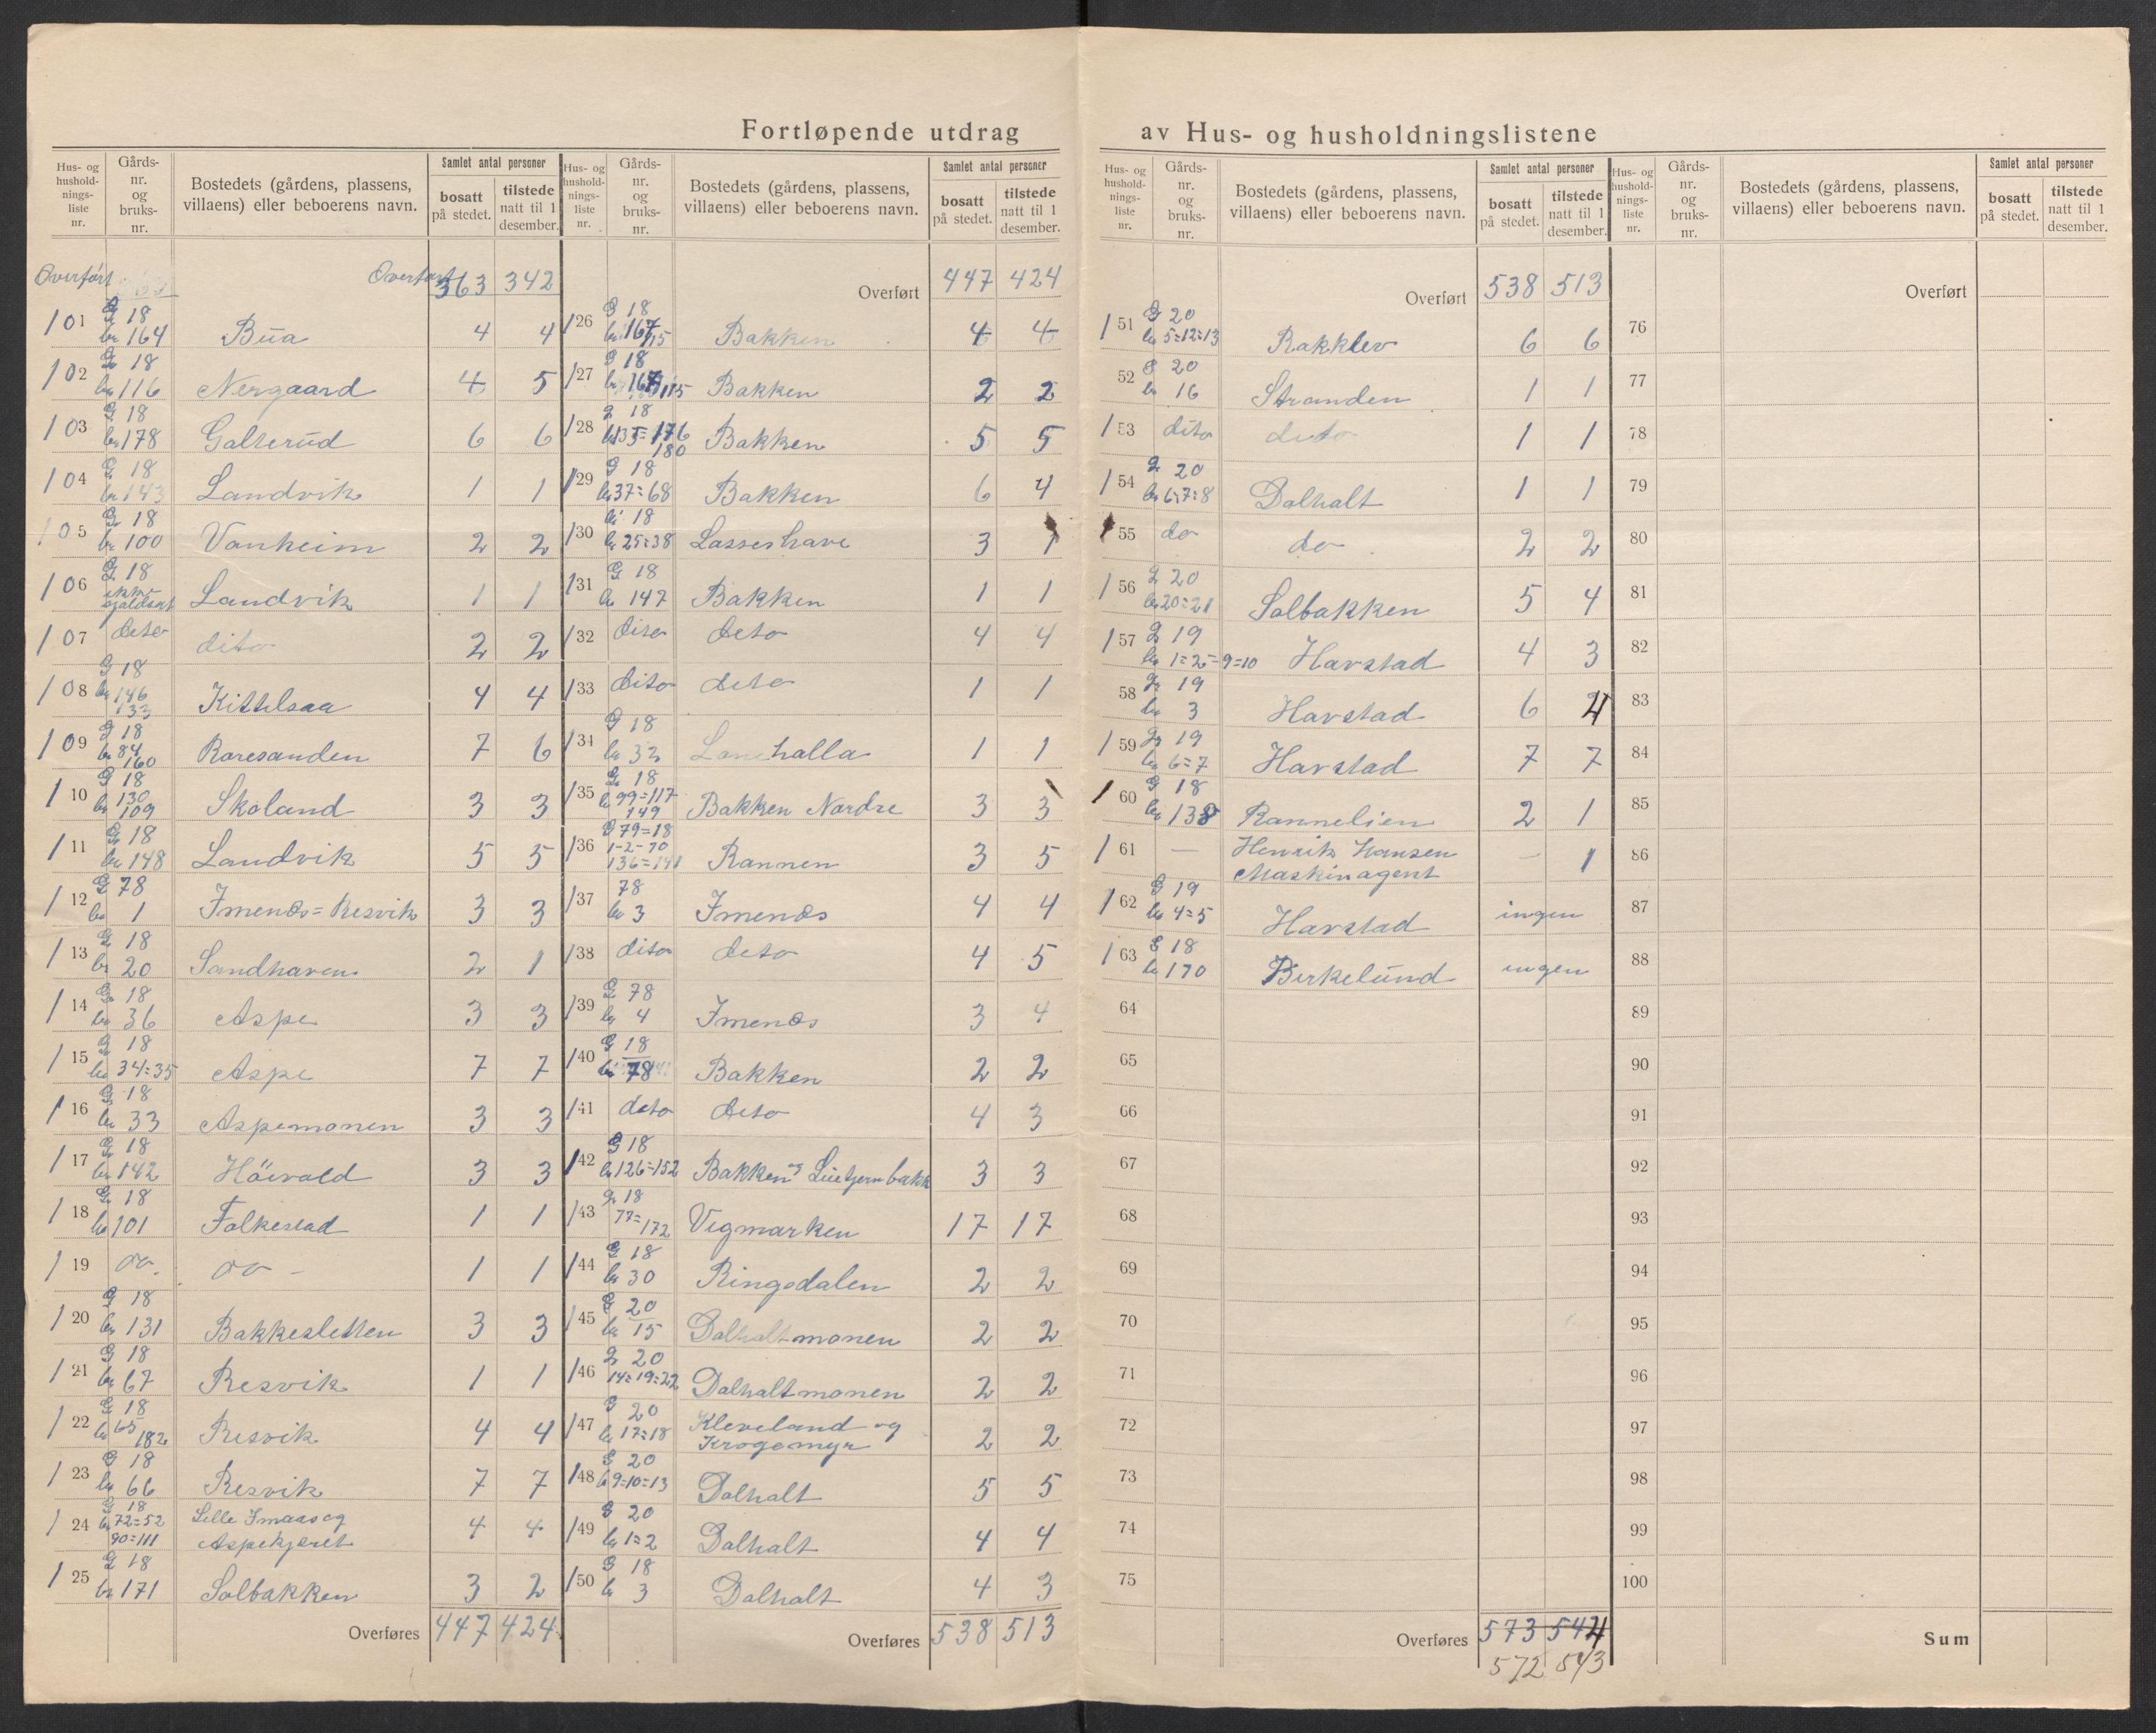 Fortløpende utdrag av Hus- og husholdningslistene
Hus- og husholdningsliste nr. | Gårds-nr. og bruks-nr. | Bostedets (gårdens, plassens, villaens) eller beboerens navn. | Samlet antal personer | bosatt på stedet. | tilstede natt til 1 desember.
Overført Overført 363 342
101 G 18 bn 164 Bua 4 4
102 G 18 bn 116 Nergaard 4 5
103 G 18 bn 178 Galterud 6 6
104 G 18 bn 143 Landvik 1 1
105 G 18 bn 100 Vanheim 2 2
106 G 18 ikke Landvik 1 1
107 dito dito 2 2
108 G 18 bn 146 133 Kittelsaa 4 4
109 G 18 bn 84 160 Roresanden 7 6
110 G 18 bn 130 109 Skoland 3 3
111 G 18 bn 148 Landvik 5 5
112 G 78 bn 1 Imenæs = Resvik 3 3
113 G 18 bn 20 Sandhaven 2 1
114 G 18 bn 36 Aspe 3 3
115 G 18 bn 34=35 Aspe 7 7
116 G 18 bn 33 Aspemonen 3 3
117 G 18 bn 142 Höivold 3 3
118 G 18 bn 101 Falkestad 1 1
119 do. do - 1 1
120 G 18 bn 131 Bakkesletten 3 3
121 G 18 bn 67 Resvik 1 1
122 G 18 bn 65 182 Resvik 4 4
123 G 18 bn 66 Resvik 7 7
124 G 18 bn 72=52 90=111 Lille Imaas og Aspekjæret 4 4
125 G 18 bn 171 Solbakken 3 2
Overføres 447 424
Hus- og husholdningsliste nr. | Gårds-nr. og bruks-nr. | Bostedets (gårdens, plassens, villaens) eller beboerens navn. | Samlet antal personer | bosatt på stedet. | tilstede natt til 1 desember.
Overført 447 424
126 G 18 bn 167/15 Bakken 4 4
127 G 18 bn 167 115 Bakken 2 2
128 G 18 135=176 180 Bakken 5 5
129 G 18 bn 37=68 Bakken 6 4
130 G 18 bn 25=38 Lasseshave 3 1
131 G 18 bn 147 Bakken 1 1
132 dito dito 4 4
133 dito dito 1 1
134 G 18 bn 32 halla 1 1
135 G 18 bn 99=117 149 Bakken Nordre 3 3
136 G 79=18 1-2-70 136=141 Rannen 3 5
137 78 bn 3 Imenæs 4 4
138 dito dito 4 5
139 G 78 bn 4 Imenæs 3 4
140 G 18 bn 78 Bakken 2 2
141 dito dito 4 3
142 G 18 bn 126=152 Bakken og 3 3
143 G 18 77=172 Vigmarken 17 17
144 G 18 bn 30 Ringsdalen 2 2
145 G 20 bn 15 Dalholtmonen 2 2
146 G 20 14=19=22 Dalholtmonen 2 2
147 G 20 bn 17=18 Kleveland og Krogemyr 2 2
148 G 20 bn 9=10=13 Dalholt 5 5
149 G 20 bn 1=2 Dalholt 4 4
150 G 18 bn 3 Dalholt 4 3
Overføres 538 513
Hus- og husholdningsliste nr. | Gårds-nr. og bruks-nr. | Bostedets (gårdens, plassens, villaens) eller beboerens navn. | Samlet antal personer | bosatt på stedet. | tilstede natt til 1 desember.
Overført 538 513
151 G 20 bn 5=12=13 Rakklev 6 6
52 G 20 bn 16 Stranden 1 1
153 dito dito 1 1
154 G 20 bn 6=7=8 Dalholt 1 1
155 do do 2 2
156 G 20 bn 20=21 Solbakken 5 4
157 G 19 bn 1=2=9=10 Harstad 4 3
58 G 19 bn 3 Harstad 6 4
159 G 19 bn 6=7 Harstad 7 7
160 G 18 bn 138 Rannelien 2 1
161 — Henrik Hansen Maskinagent — 1
162 G 19 bn 4=5 Harstad ingen
163 G 18 bn 170 Birkelund ingen
64
65
66
67
68
69
70
71
72
73
74
75
Overføres 573 544
572 543
Hus- og husholdningsliste nr. | Gårds-nr. og bruks-nr. | Bostedets (gårdens, plassens, villaens) eller beboerens navn. | Samlet antal personer | bosatt på stedet. | tilstede natt til 1 desember.
Overført
76
77
78
79
80
81
82
83
84
85
86
87
88
89
90
91
92
93
94
95
96
97
98
99
100
Sum